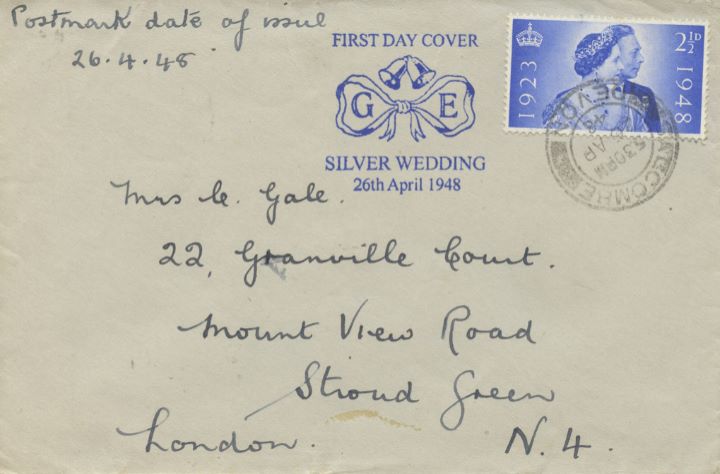 Postmark date of issue
26.4.48
FIRST DAY COVER
G E
SILVER WEDDING
26th April 1948
1923
2½D
1948
SALCOMBE
5 30 PM
AP
48
DEVON
Mrs C. Gale.
22, Granville Court.
Mount View Road
Stroud Green
London. N.4.